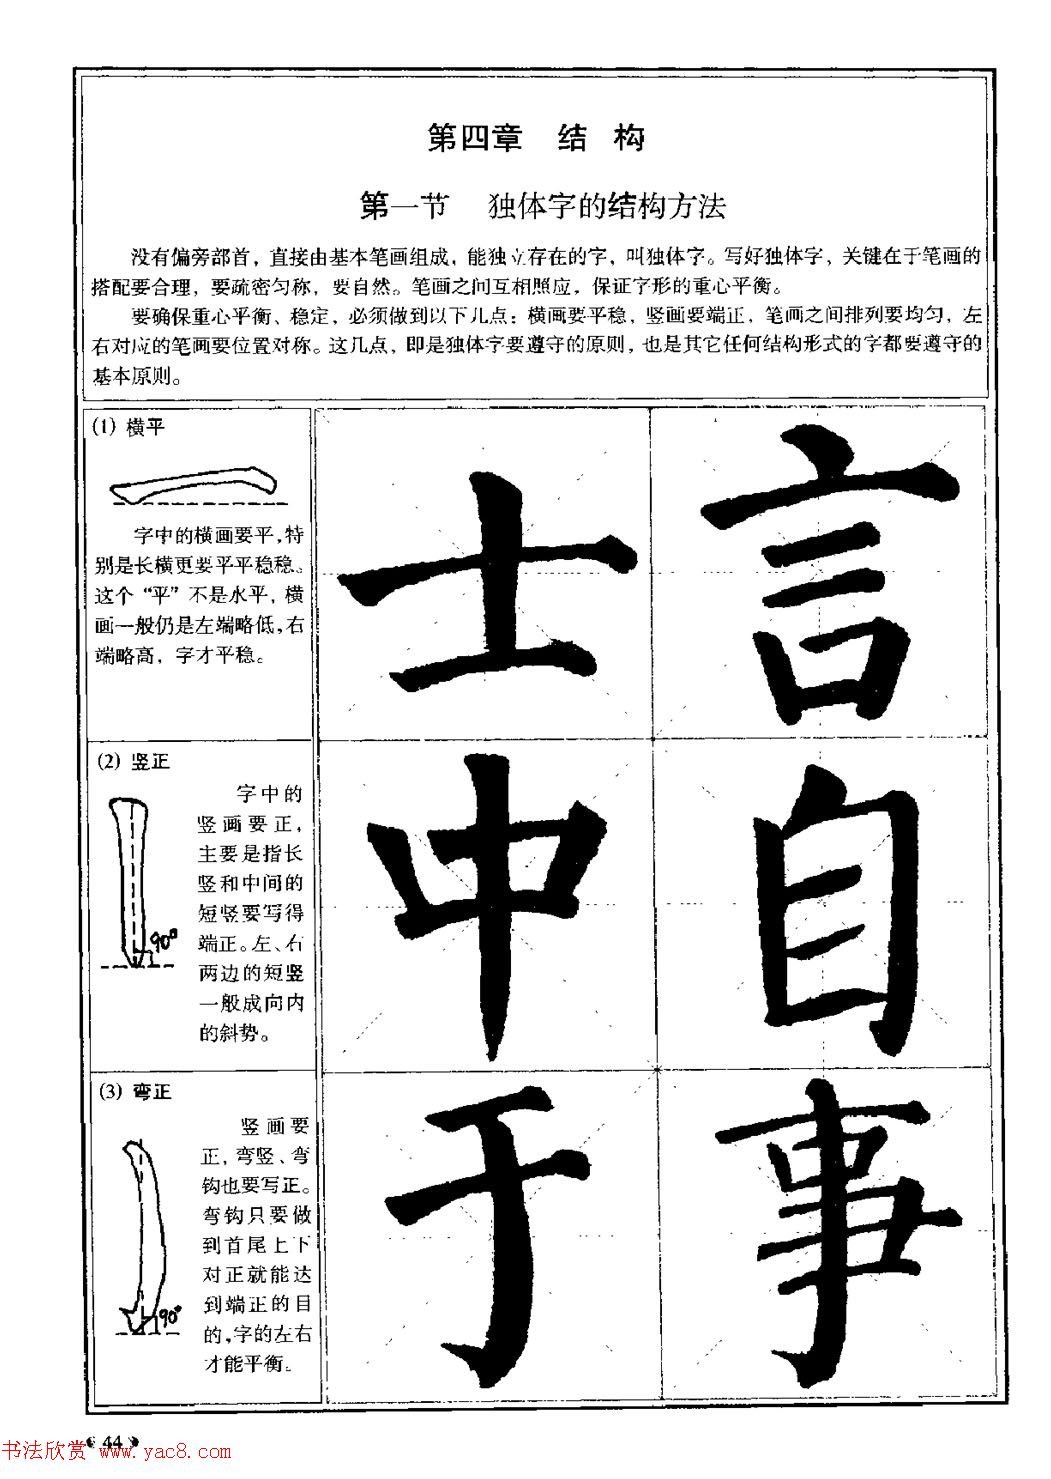 第四章 结构
第一节 独体字的结构方法
没有偏旁部首，直接由基本笔画组成，能独立存在的字，叫独体字。写好独体字，关键在于笔画的
搭配要合理，要疏密匀称，要自然。笔画之间互相照应，保证字形的重心平衡。
要确保重心平衡、稳定，必须做到以下几点：横画要平稳，竖画要端正，笔画之间排列要均匀，左
右对应的笔画要位置对称。这几点，即是独体字要遵守的原则，也是其它任何结构形式的字都要遵守的
基本原则。
(1) 横平
字中的横画要平，特
别是长横更要平平稳稳。
这个“平”不是水平，横
画一般仍是左端略低，右
端略高，字才平稳。
士 言
(2) 竖正
字中的
竖画要正，
主要是指长
竖和中间的
短竖要写得
端正。左、右
两边的短竖
一般成向内
的斜势。
90°
中 自
(3) 弯正
竖画要
正，弯竖、弯
钩也要写正。
弯钩只要做
到首尾上下
对正就能达
到端正的目
的，字的左右
才能平衡。
90°
于 事
44
书法欣赏 www.yac8.com